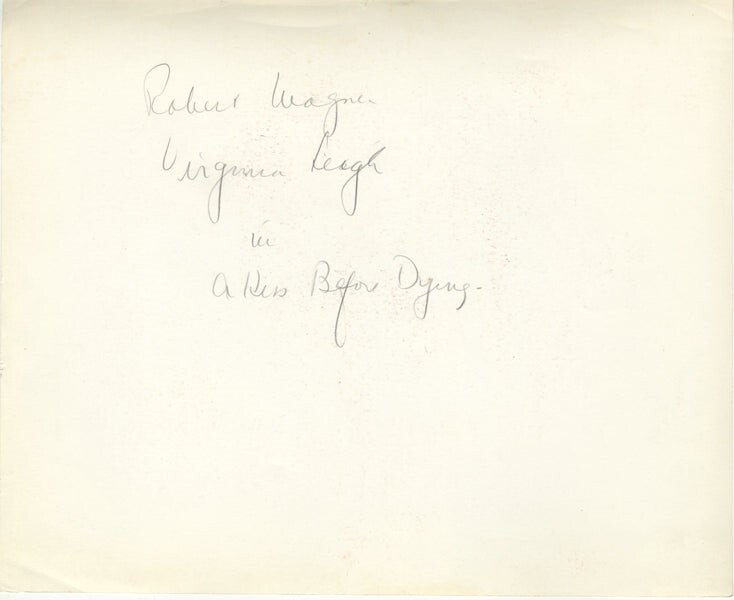 Robert Wagner
Virginia Leigh
in
A Kiss Before Dying.